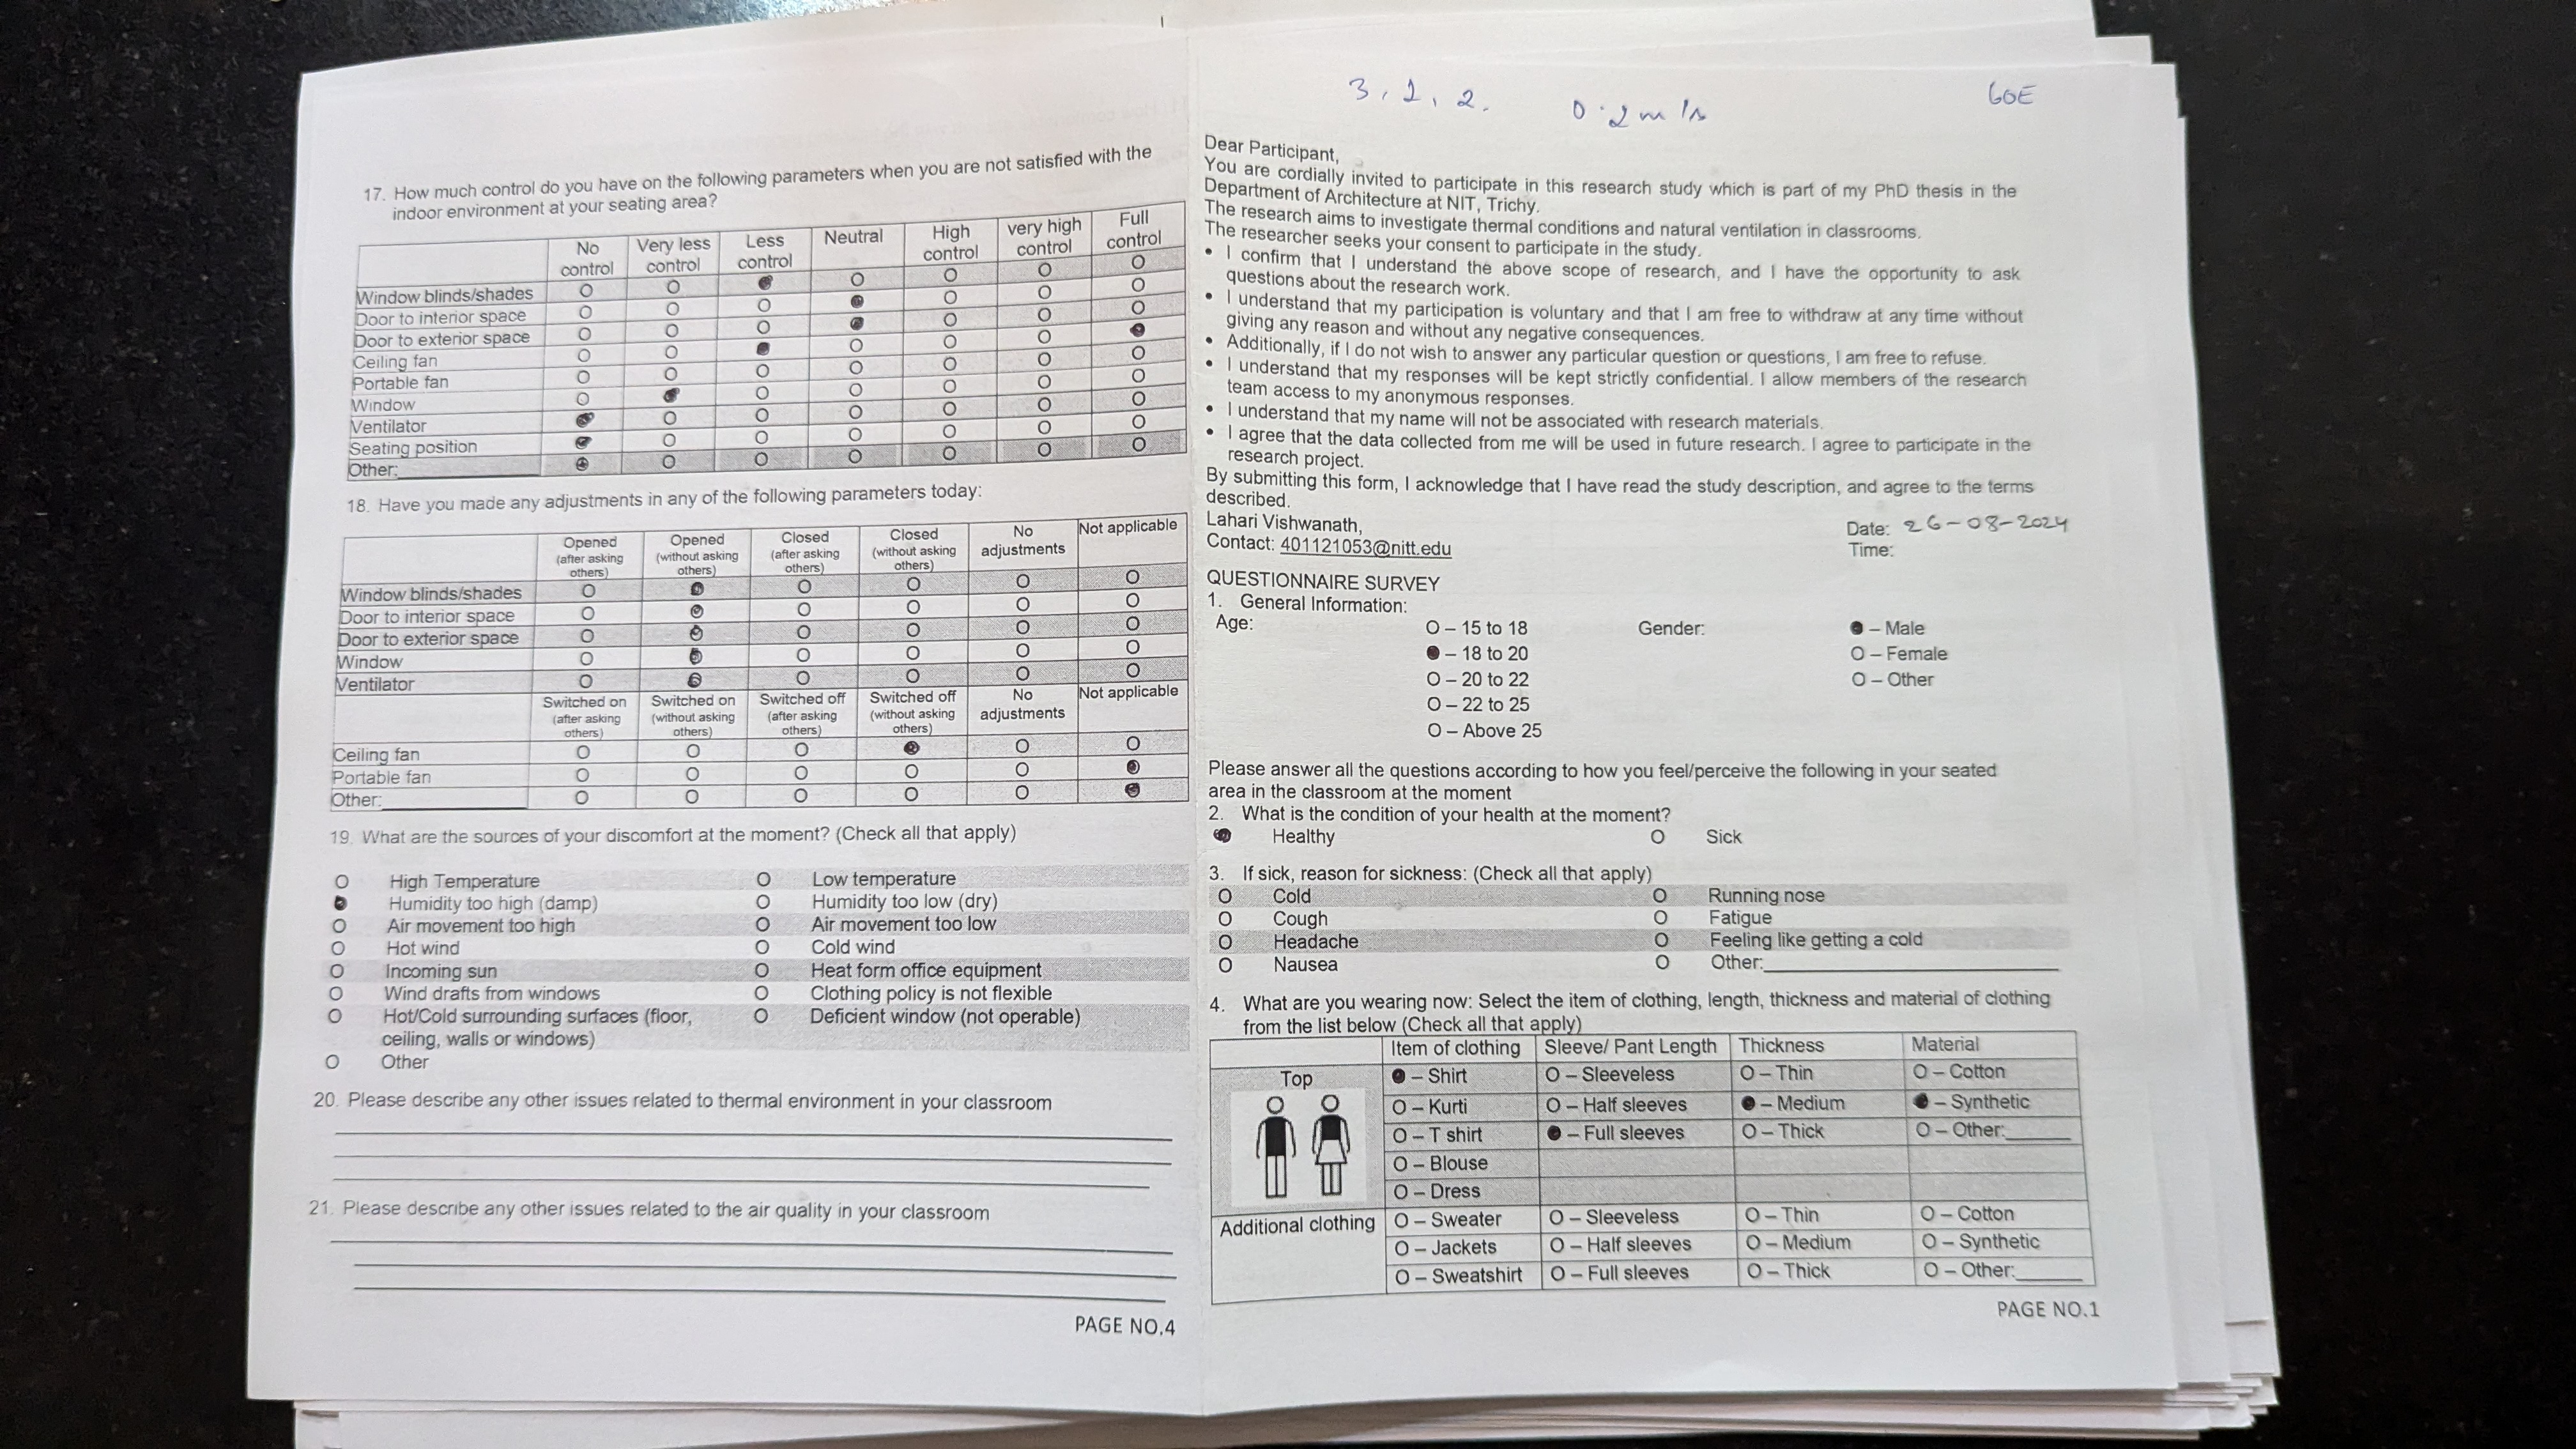 17. How much control do you have on the following parameters when you are not satisfied with the
indoor environment at your seating area?
No control Very less control Less control Neutral High control very high control Full control
Window blinds/shades O O ● O O O O
Door to interior space O O O ● O O O
Door to exterior space O O O ● O O O
Ceiling fan O O ● O O O ●
Portable fan O O O O O O O
Window O ● O O O O O
Ventilator ● O O O O O O
Seating position ● O O O O O O
Other:__________ ● O O O O O O
18. Have you made any adjustments in any of the following parameters today:
Opened (after asking others) Opened (without asking others) Closed (after asking others) Closed (without asking others) No adjustments Not applicable
Window blinds/shades O ● O O O O
Door to interior space O ● O O O O
Door to exterior space O ● O O O O
Window O ● O O O O
Ventilator O ● O O O O
Switched on (after asking others) Switched on (without asking others) Switched off (after asking others) Switched off (without asking others) No adjustments Not applicable
Ceiling fan O O O ● O O
Portable fan O O O O O ●
Other:__________ O O O O O ●
19. What are the sources of your discomfort at the moment? (Check all that apply)
O High Temperature O Low temperature
● Humidity too high (damp) O Humidity too low (dry)
O Air movement too high O Air movement too low
O Hot wind O Cold wind
O Incoming sun O Heat form office equipment
O Wind drafts from windows O Clothing policy is not flexible
O Hot/Cold surrounding surfaces (floor, O Deficient window (not operable)
ceiling, walls or windows)
O Other
20. Please describe any other issues related to thermal environment in your classroom
21. Please describe any other issues related to the air quality in your classroom
PAGE NO.4
3, 1, 2. 0.2 m/s 60E
Dear Participant,
You are cordially invited to participate in this research study which is part of my PhD thesis in the
Department of Architecture at NIT, Trichy.
The research aims to investigate thermal conditions and natural ventilation in classrooms.
The researcher seeks your consent to participate in the study.
• I confirm that I understand the above scope of research, and I have the opportunity to ask
questions about the research work.
• I understand that my participation is voluntary and that I am free to withdraw at any time without
giving any reason and without any negative consequences.
• Additionally, if I do not wish to answer any particular question or questions, I am free to refuse.
• I understand that my responses will be kept strictly confidential. I allow members of the research
team access to my anonymous responses.
• I understand that my name will not be associated with research materials.
• I agree that the data collected from me will be used in future research. I agree to participate in the
research project.
By submitting this form, I acknowledge that I have read the study description, and agree to the terms
described.
Lahari Vishwanath, Date: 26-08-2024
Contact: 401121053@nitt.edu Time:
QUESTIONNAIRE SURVEY
1. General Information:
Age: O – 15 to 18 Gender: ● – Male
● – 18 to 20 O – Female
O – 20 to 22 O – Other
O – 22 to 25
O – Above 25
Please answer all the questions according to how you feel/perceive the following in your seated
area in the classroom at the moment
2. What is the condition of your health at the moment?
● Healthy O Sick
3. If sick, reason for sickness: (Check all that apply)
O Cold O Running nose
O Cough O Fatigue
O Headache O Feeling like getting a cold
O Nausea O Other:__________
4. What are you wearing now: Select the item of clothing, length, thickness and material of clothing
from the list below (Check all that apply)
Item of clothing Sleeve/ Pant Length Thickness Material
Top ● – Shirt O – Sleeveless O – Thin O – Cotton
O – Kurti O – Half sleeves ● – Medium ● – Synthetic
O – T shirt ● – Full sleeves O – Thick O – Other:______
O – Blouse
O – Dress
Additional clothing O – Sweater O – Sleeveless O – Thin O – Cotton
O – Jackets O – Half sleeves O – Medium O – Synthetic
O – Sweatshirt O – Full sleeves O – Thick O – Other:______
PAGE NO.1